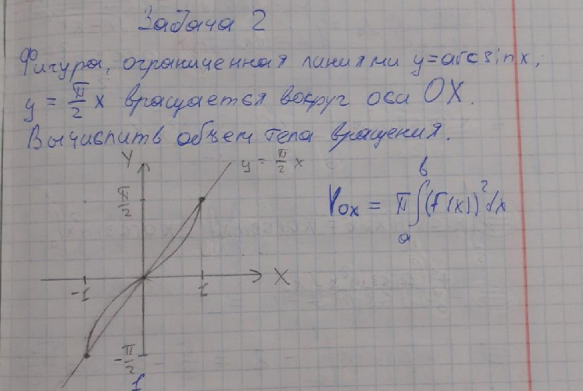 Задача 2
Фигура, ограниченная линиями y=arcsinx,
y = π/2 x вращается вокруг оси OX.
Вычислить объем тела вращения.
Y
y = π/2 x
π/2
Vox = π∫ₐᵇ(f(x))²dx
-1
1
X
-π/2
1